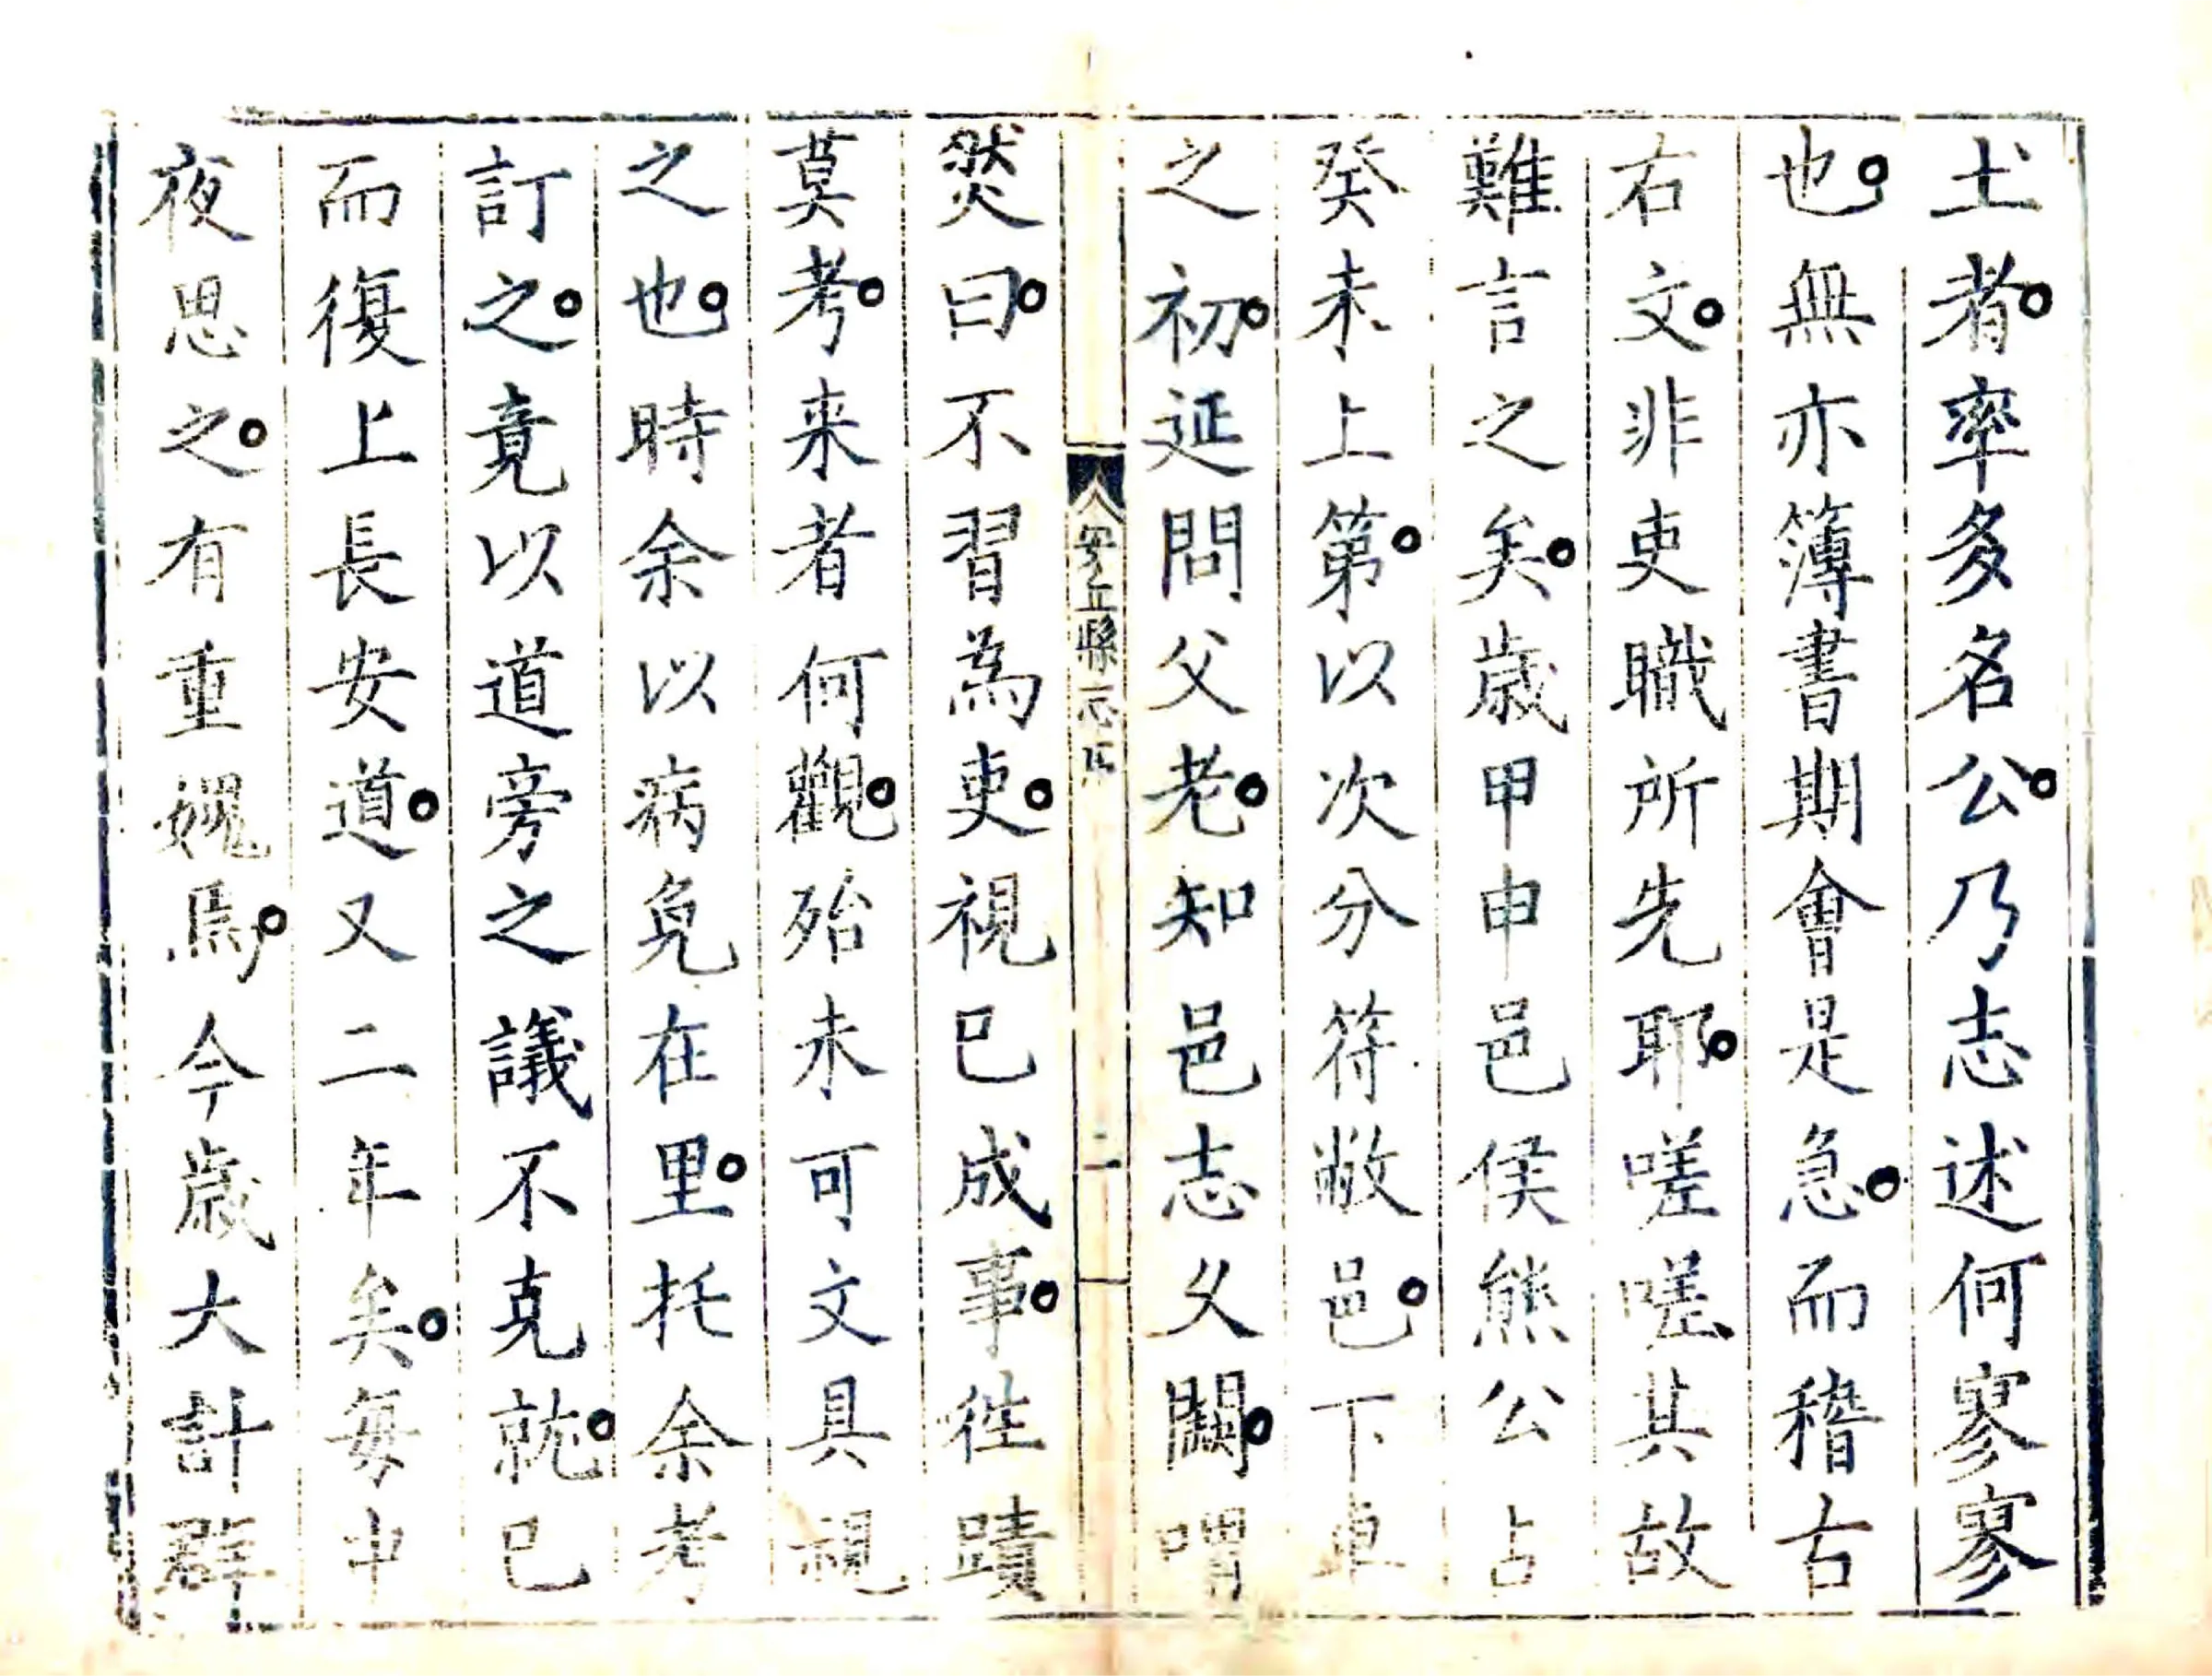 土者。率多名公。乃志述何寥寥
也。無亦簿書期會是急。而稽古
右文。非吏職所先耶。嗟嗟其故
難言之矣。歲甲申邑侯熊公占
癸未上第。以次分符敝邑。下車
之初。延問父老。知邑志久闕。喟
安丘縣志序
二
然曰。不習為吏。視已成事。徃蹟
莫考。来者何觀。殆未可文具視
之也。時余以病免在里。托余考
訂之。竟以道旁之議不克就。已
而復上長安道。又二年矣。每中
夜思之。有重媿焉。今歲大計群